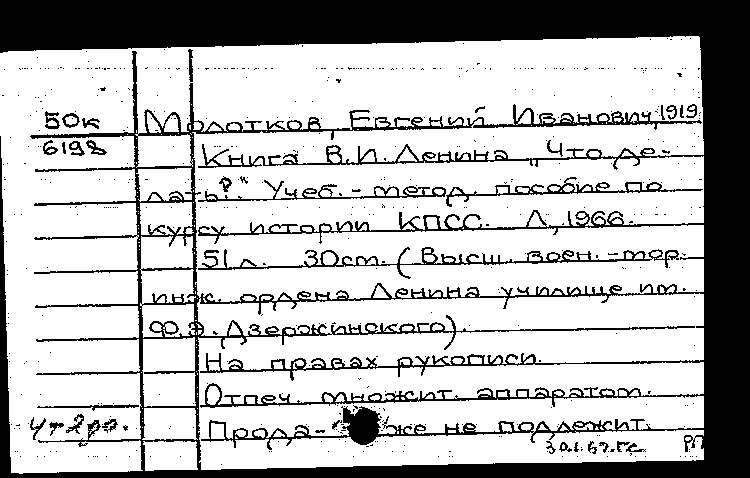 50к
6198
Молотков, Евгений Иванович, 1919
Книга В.И. Ленина „Что де-
лать?". Учеб.-метод. пособие по
курсу истории КПСС. Л., 1966.
51 л. 30см. (Высш. воен.-мор.
инж. ордена Ленина училище им.
Ф.Э. Дзержинского).
На правах рукописи.
Отпеч. множит. аппаратом.
Прода- же не подлежит.
РП